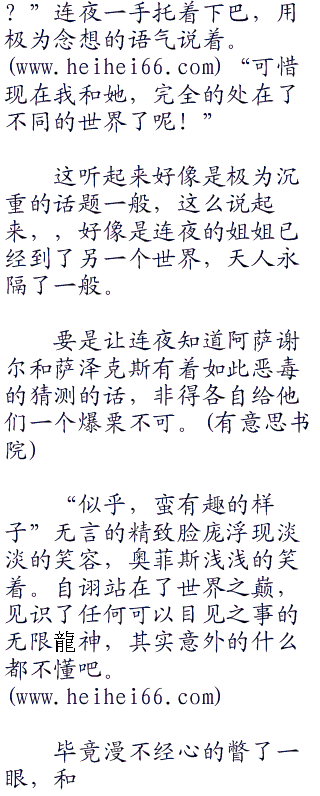 ？”连夜一手托着下巴，用
极为念想的语气说着。
(www.heihei66.com)“可惜
现在我和她，完全的处在了
不同的世界了呢！”
这听起来好像是极为沉
重的话题一般，这么说起
来，，好像是连夜的姐姐已
经到了另一个世界，天人永
隔了一般。
要是让连夜知道阿萨谢
尔和萨泽克斯有着如此恶毒
的猜测的话，非得各自给他
们一个爆栗不可。(有意思书
院)
“似乎，蛮有趣的样
子”无言的精致脸庞浮现淡
淡的笑容，奥菲斯浅浅的笑
着。自诩站在了世界之巅，
见识了任何可以目见之事的
无限龍神，其实意外的什么
都不懂吧。
(www.heihei66.com)
毕竟漫不经心的瞥了一
眼，和